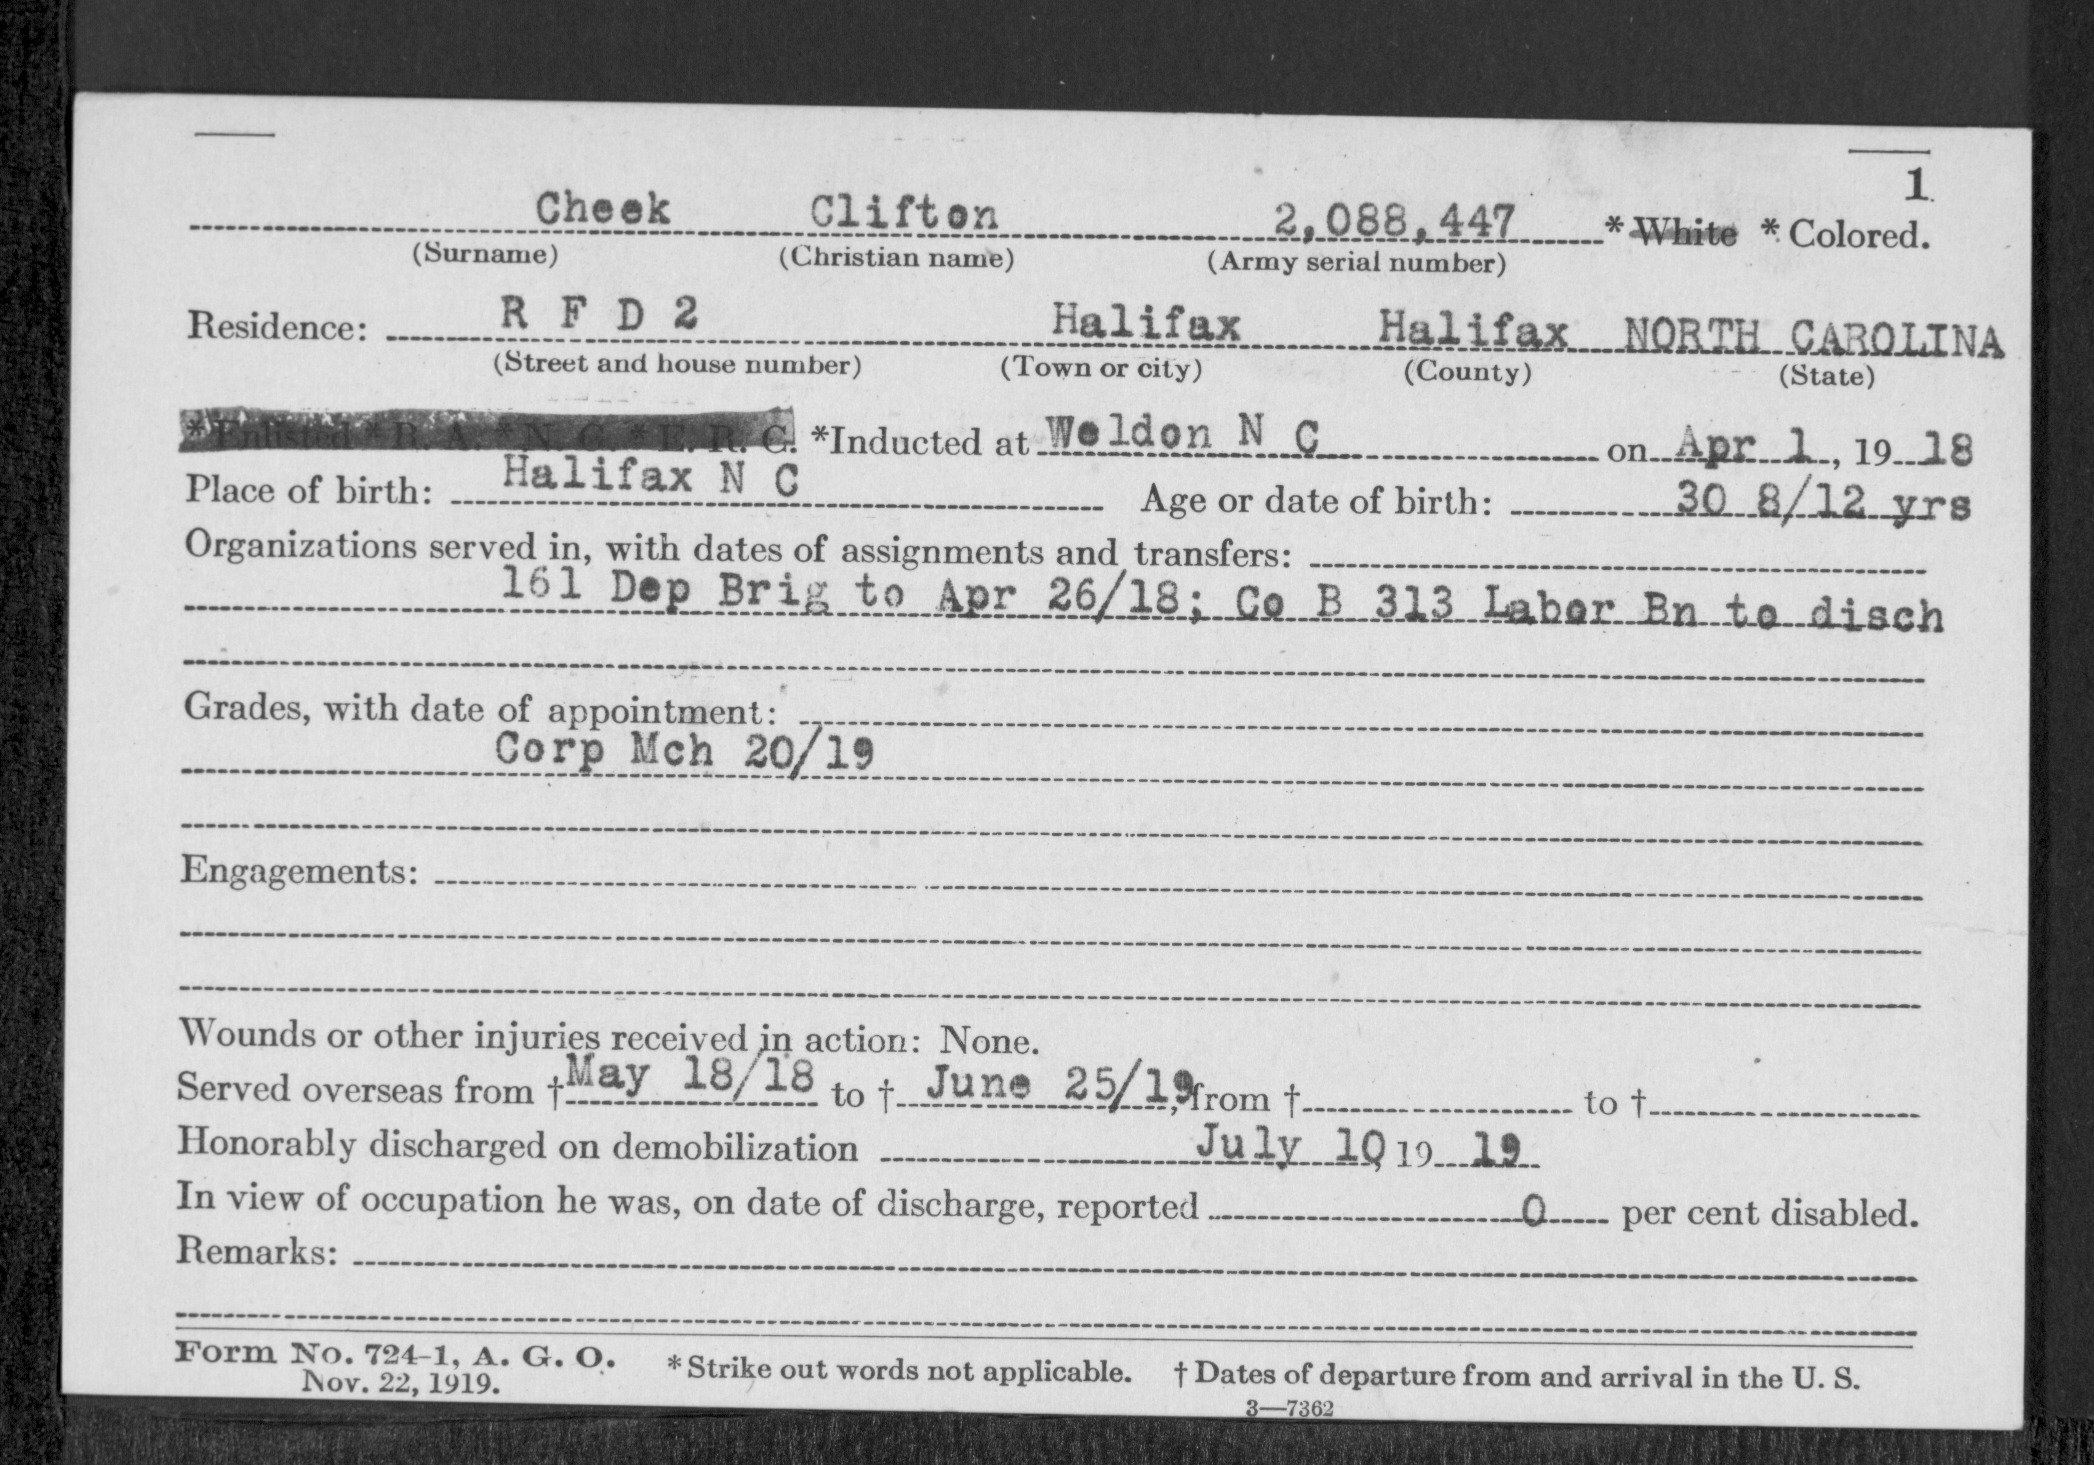 1
Cheek Clifton 2,088,447 * White * Colored.
(Surname) (Christian name) (Army serial number)
Residence: R F D 2 Halifax Halifax NORTH CAROLINA
(Street and house number) (Town or city) (County) (State)
* Enlisted * R. A. * N. G. * E. R. C. *Inducted at Weldon N C on Apr 1, 19 18
Place of birth: Halifax N C Age or date of birth: 30 8/12 yrs
Organizations served in, with dates of assignments and transfers:
161 Dep Brig to Apr 26/18; Co B 313 Labor Bn to disch
Grades, with date of appointment:
Corp Mch 20/19
Engagements:
Wounds or other injuries received in action: None.
Served overseas from † May 18/18 to † June 25/19, from † to †
Honorably discharged on demobilization July 10, 19 19
In view of occupation he was, on date of discharge, reported 0 per cent disabled.
Remarks:
Form No. 724-1, A. G. O. * Strike out words not applicable. † Dates of departure from and arrival in the U. S.
Nov. 22, 1919.
3—7362